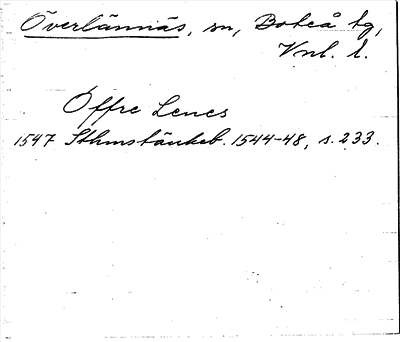 Överlännäs, sn, Boteå tg,
Vnl. l.
Offre Lenes
1547 Sthmstänkeb. 1544-48, s. 233.